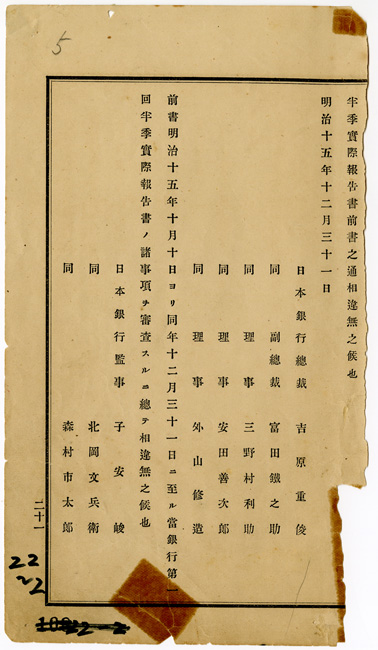 半季實際報告書前書之通相違無之候也
明治十五年十二月三十一日
日本銀行總裁 吉原重俊
同 副總裁 富田鐵之助
同 理事 三野村利助
同 理事 安田善次郎
同 理事 外山修造
前書明治十五年十月十日ヨリ同年十二月三十一日ニ至ル當銀行第一
回半季實際報告書ノ諸事項ヲ審査スルニ總テ相違無之候也
日本銀行監事 子安峻
同 北岡文兵衛
同 森村市太郎
二十一
5
22
~2
22-2